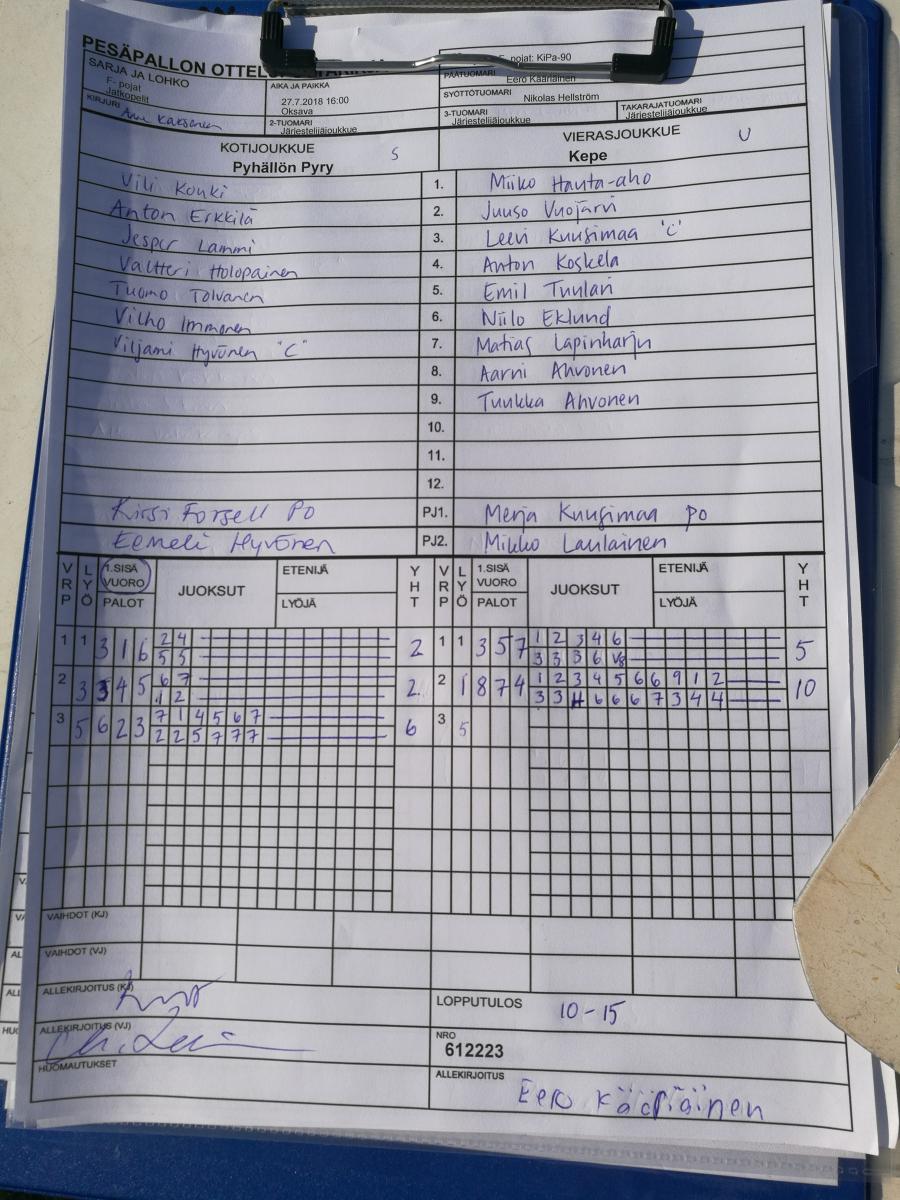 PESÄPALLON
SARJA JA LOHKO
F- pojat
Jatkopelit
AIKA JA PAIKKA
27.7.2018 16:00
Oksava
pojat: KiPa-90
PÄÄTUOMARI
Eero Kääriäinen
SYÖTTÖTUOMARI
Nikolas Hellström
KIRJURI
2-TUOMARI
Järjestelijäjoukkue
3-TUOMARI
Järjestelijäjoukkue
TAKARAJATUOMARI
Järjestelijäjoukkue
KOTIJOUKKUE S VIERASJOUKKUE U
Pyhällön Pyry Kepe
Vili Kouki 1. Miiko Hauta-aho
Anton Erkkilä 2. Juuso Vuojärvi
Jesper Lammi 3. Leevi Kuusimaa "C"
Valtteri Holopainen 4. Anton Koskela
Tuomo Tolvanen 5. Emil Tuulari
Vilho Immonen 6. Niilo Eklund
Viljami Hyvönen "C" 7. Matias Lapinharju
8. Aarni Ahvonen
9. Tuukka Ahvonen
10.
11.
12.
Kirsi Forsell PO PJ1. Merja Kuusimaa po
Eemeli Hyvönen PJ2. Mikko Laulainen
VRP LYÖ 1.SISÄ VUORO PALOT JUOKSUT ETENIJÄ LYÖJÄ YHT VRP LYÖ 1.SISÄ VUORO PALOT JUOKSUT ETENIJÄ LYÖJÄ YHT
1 1 3 1 6 2 4 2 1 1 3 5 7 1 2 3 4 6 5
5 5 3 3 3 6 V8
2 3 3 4 5 6 7 2 2 1 8 7 4 1 2 3 4 5 6 6 9 1 2 10
1 2 3 3 4 6 6 6 7 3 4 4
3 5 6 2 3 7 1 4 5 6 7 6 3 5
2 2 5 7 7 7
VAIHDOT (KJ)
VAIHDOT (VJ)
ALLEKIRJOITUS (KJ)
LOPPUTULOS 10-15
ALLEKIRJOITUS (VJ)
NRO
612223
HUOMAUTUKSET
ALLEKIRJOITUS
Eero Kääriäinen